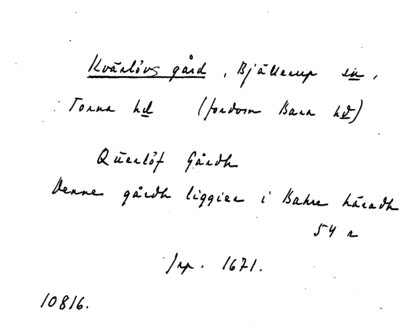 Kvärlövs gård, Bjällerup sn,
Torna hd (fordom Bara hd)
Querlöf Gårdh
Denne gårdh liggier i Bahre häradh
54 r
Jrp. 1671.
10816.